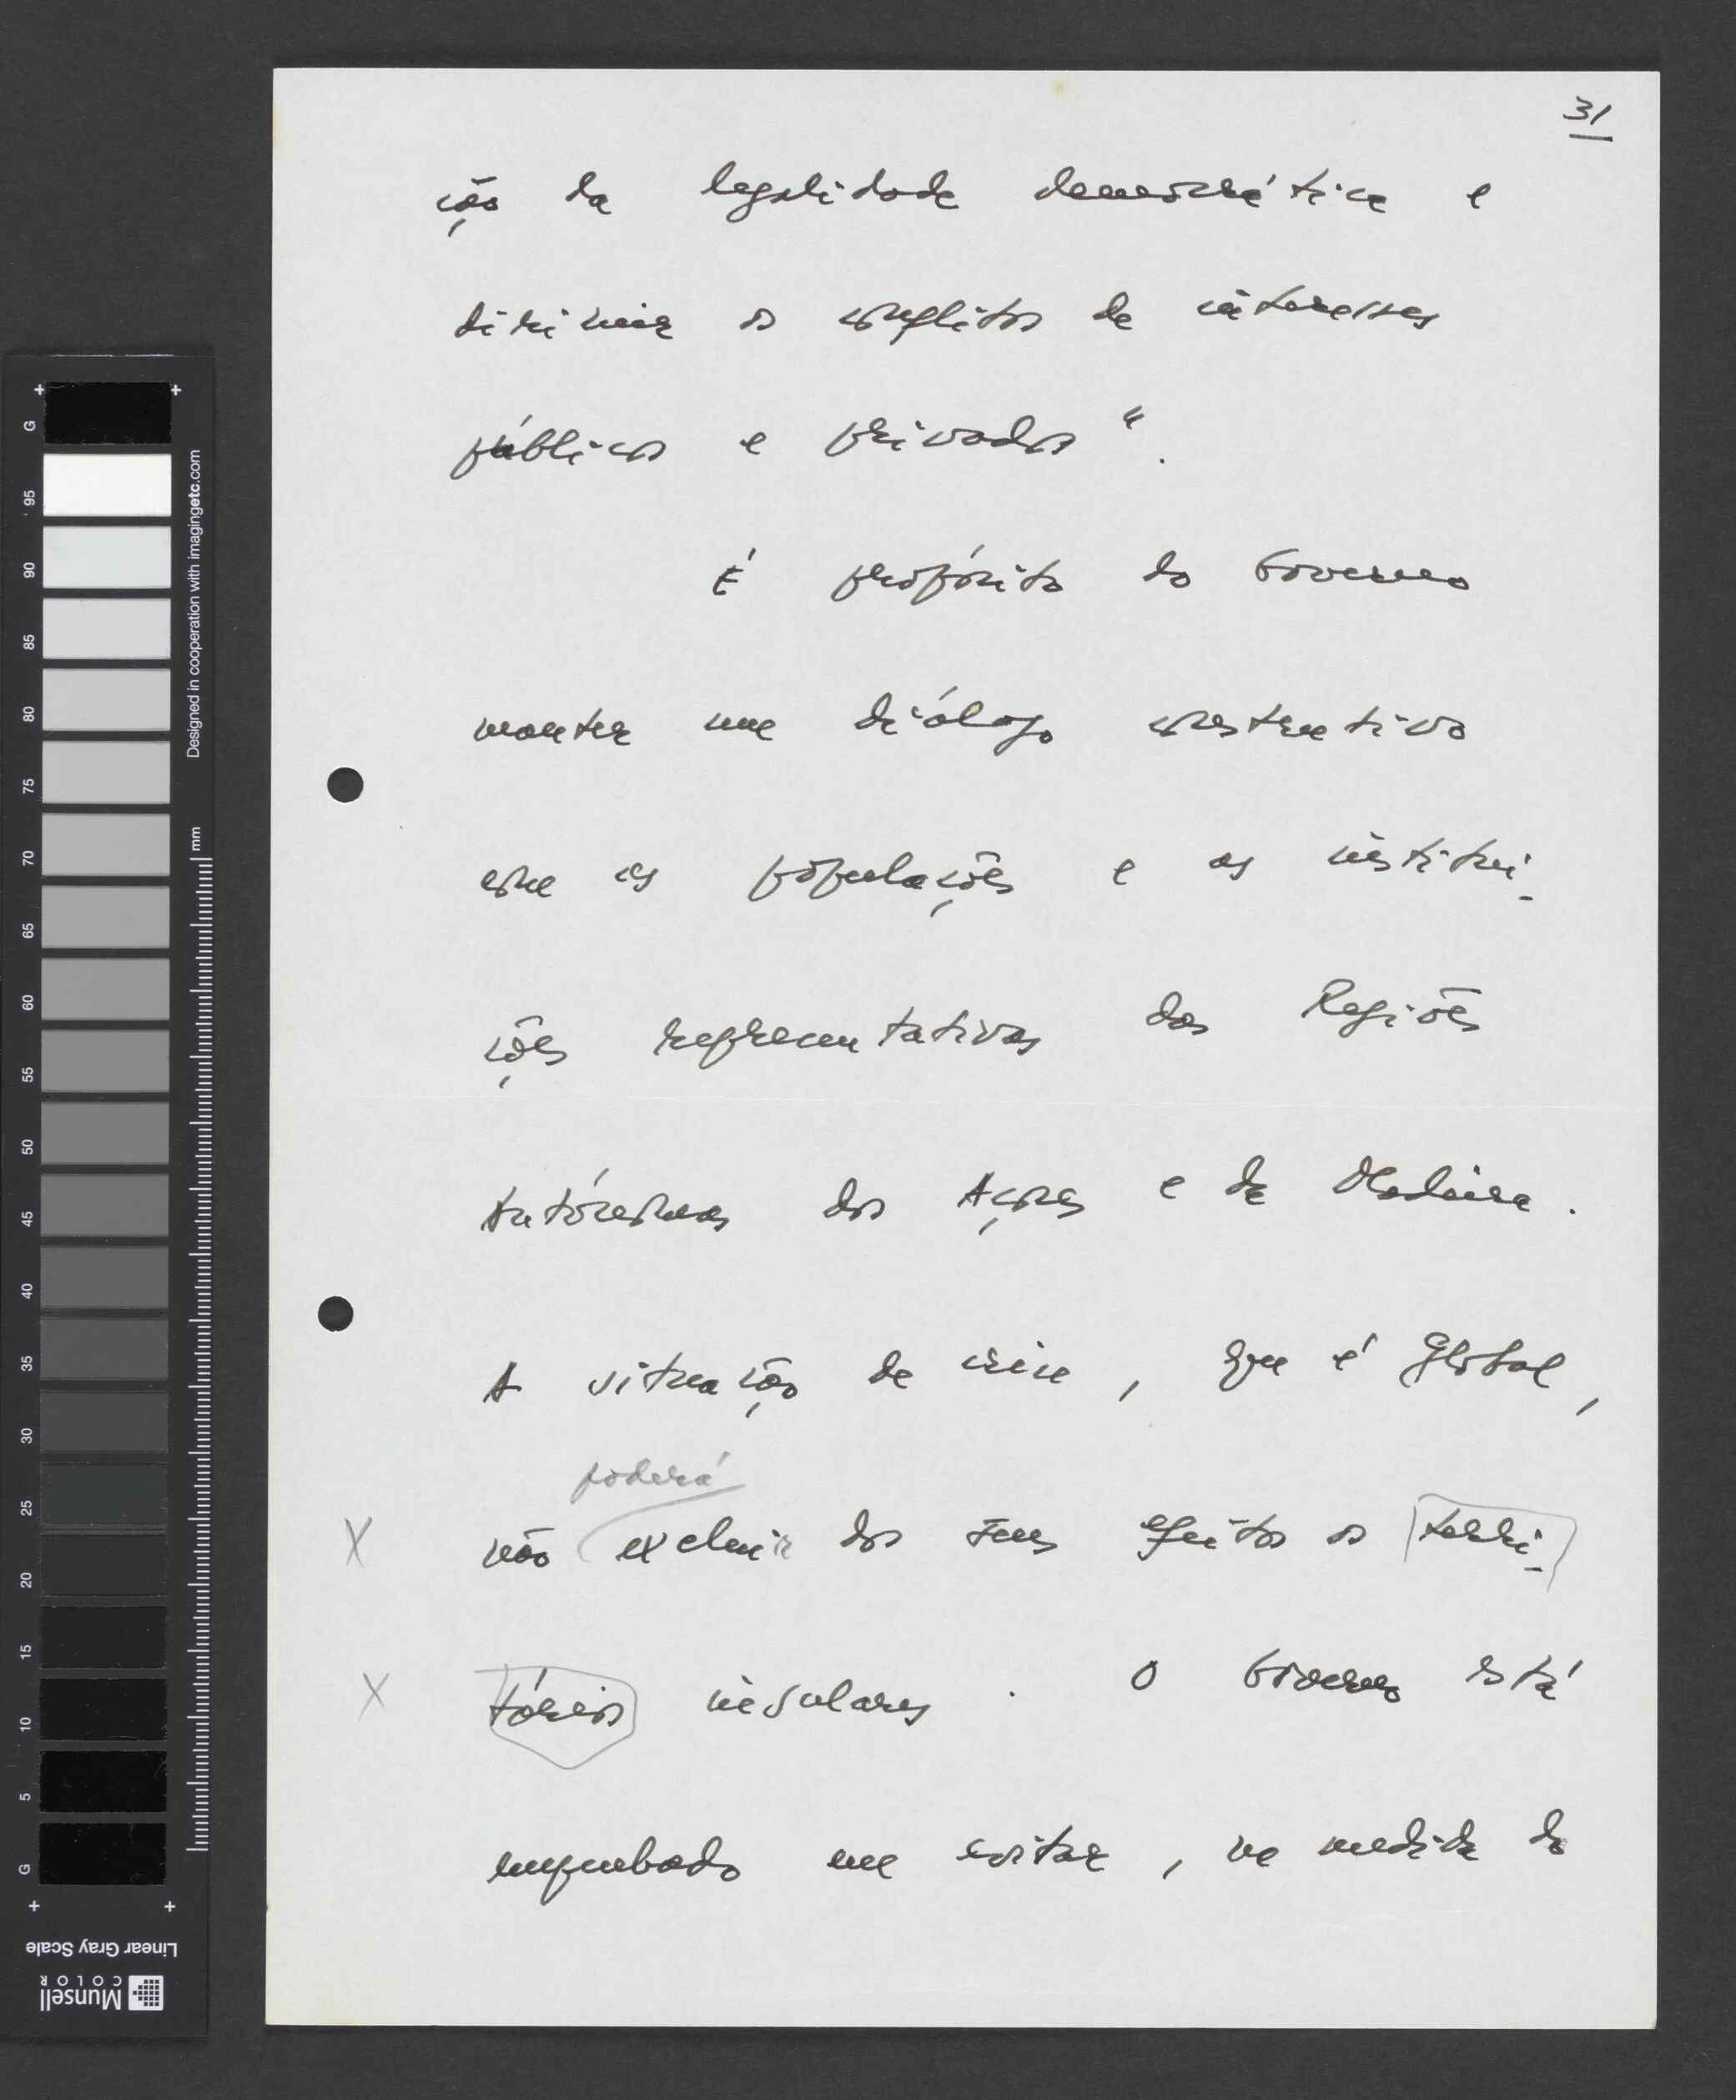 31
ção da legalidade democrática e
dirimir os conflitos de interesses
públicos e privados".
É propósito do Governo
manter um diálogo construtivo
com as populações e as institui-
ções representativas das Regiões
Autónomas dos Açores e da Madeira.
A situação de crise, que é global,
poderá
X não excluir dos seus efeitos os terri-
X tórios insulares. O Governo está
empenhado em evitar, na medida do
G 95 90 85 80 75 70 65 60 55 50 45 40 35 30 25 20 15 10 5 G
Designed in cooperation with imagingetc.com
mm
Linear Gray Scale
Munsell
COLOR